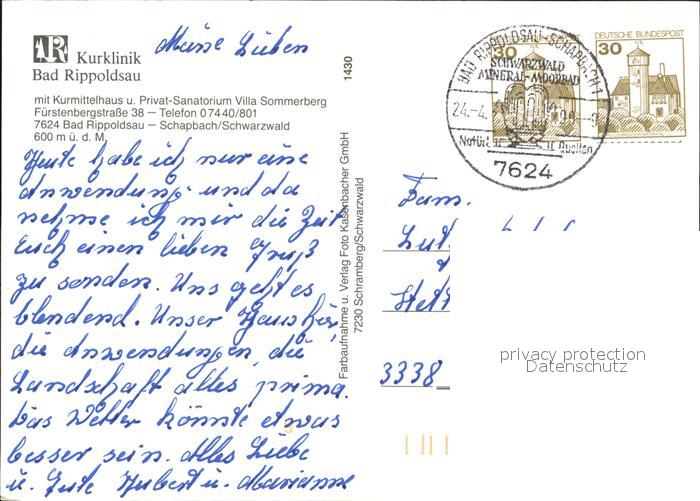 Meine Lieben
Kurklinik
Bad Rippoldsau
mit Kurmittelhaus u. Privat-Sanatorium Villa Sommerberg
Fürstenbergstraße 38 – Telefon 07440/801
7624 Bad Rippoldsau – Schapbach/Schwarzwald
600 m ü. d. M.
Heute habe ich nur eine
Anwendung und da
nehme ich mir die Zeit
Euch einen lieben Gruß
zu senden. Uns geht es
blendend. Unser Haus hier,
die Anwendungen, die
Landschaft alles prima.
Das Wetter könnte etwas
besser sein. Alles Liebe
u. Gute Hubert u. Marianne
1430
Farbaufnahme u. Verlag Foto Kasenbacher GmbH
7230 Schramberg/Schwarzwald
DEUTSCHE BUNDESPOST
30
30
BAD RIPPOLDSAU-SCHAPBACH 1
SCHWARZWALD
MINERAL-MOORBAD
24.-4.
7624
Fam.
3338
privacy protection
Datenschutz